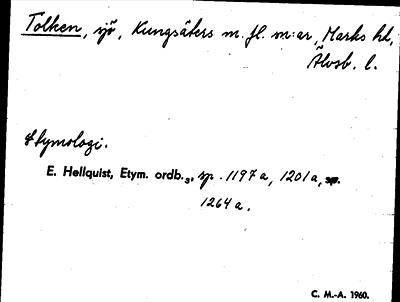 Tolken, sjö, Kungsäters m. fl. m:ar, Marks hd,
Älvsb. l.
Etymologi.
E. Hellquist, Etym. ordb.₃, sp. 1197 a, 1201 a,
1264 a.
C. M.-A. 1960.